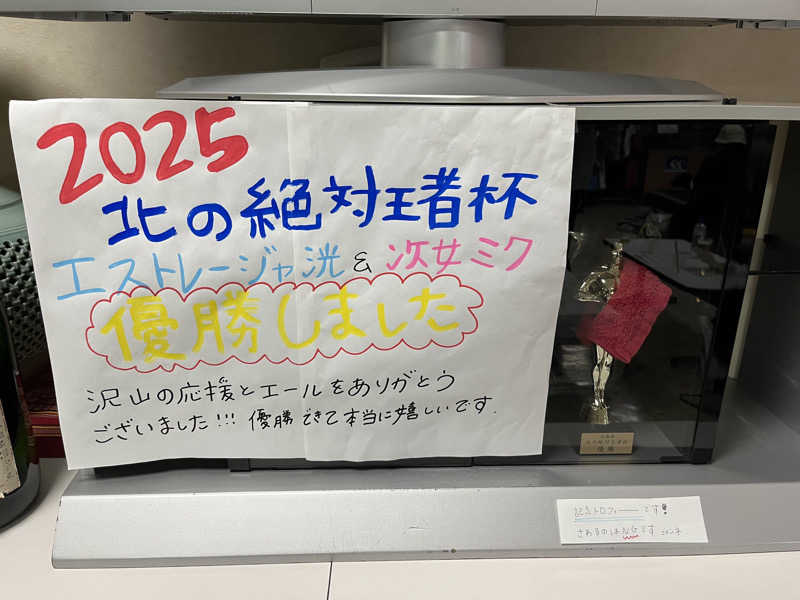 2025
北の絶対王者杯
エストレージャ洸 & 次女ミク
優勝しました
沢山の応援とエールをありがとう
ございました!!! 優勝できて本当に嬉しいです.
優勝
記念トロフィーです!
さわるのはNGです